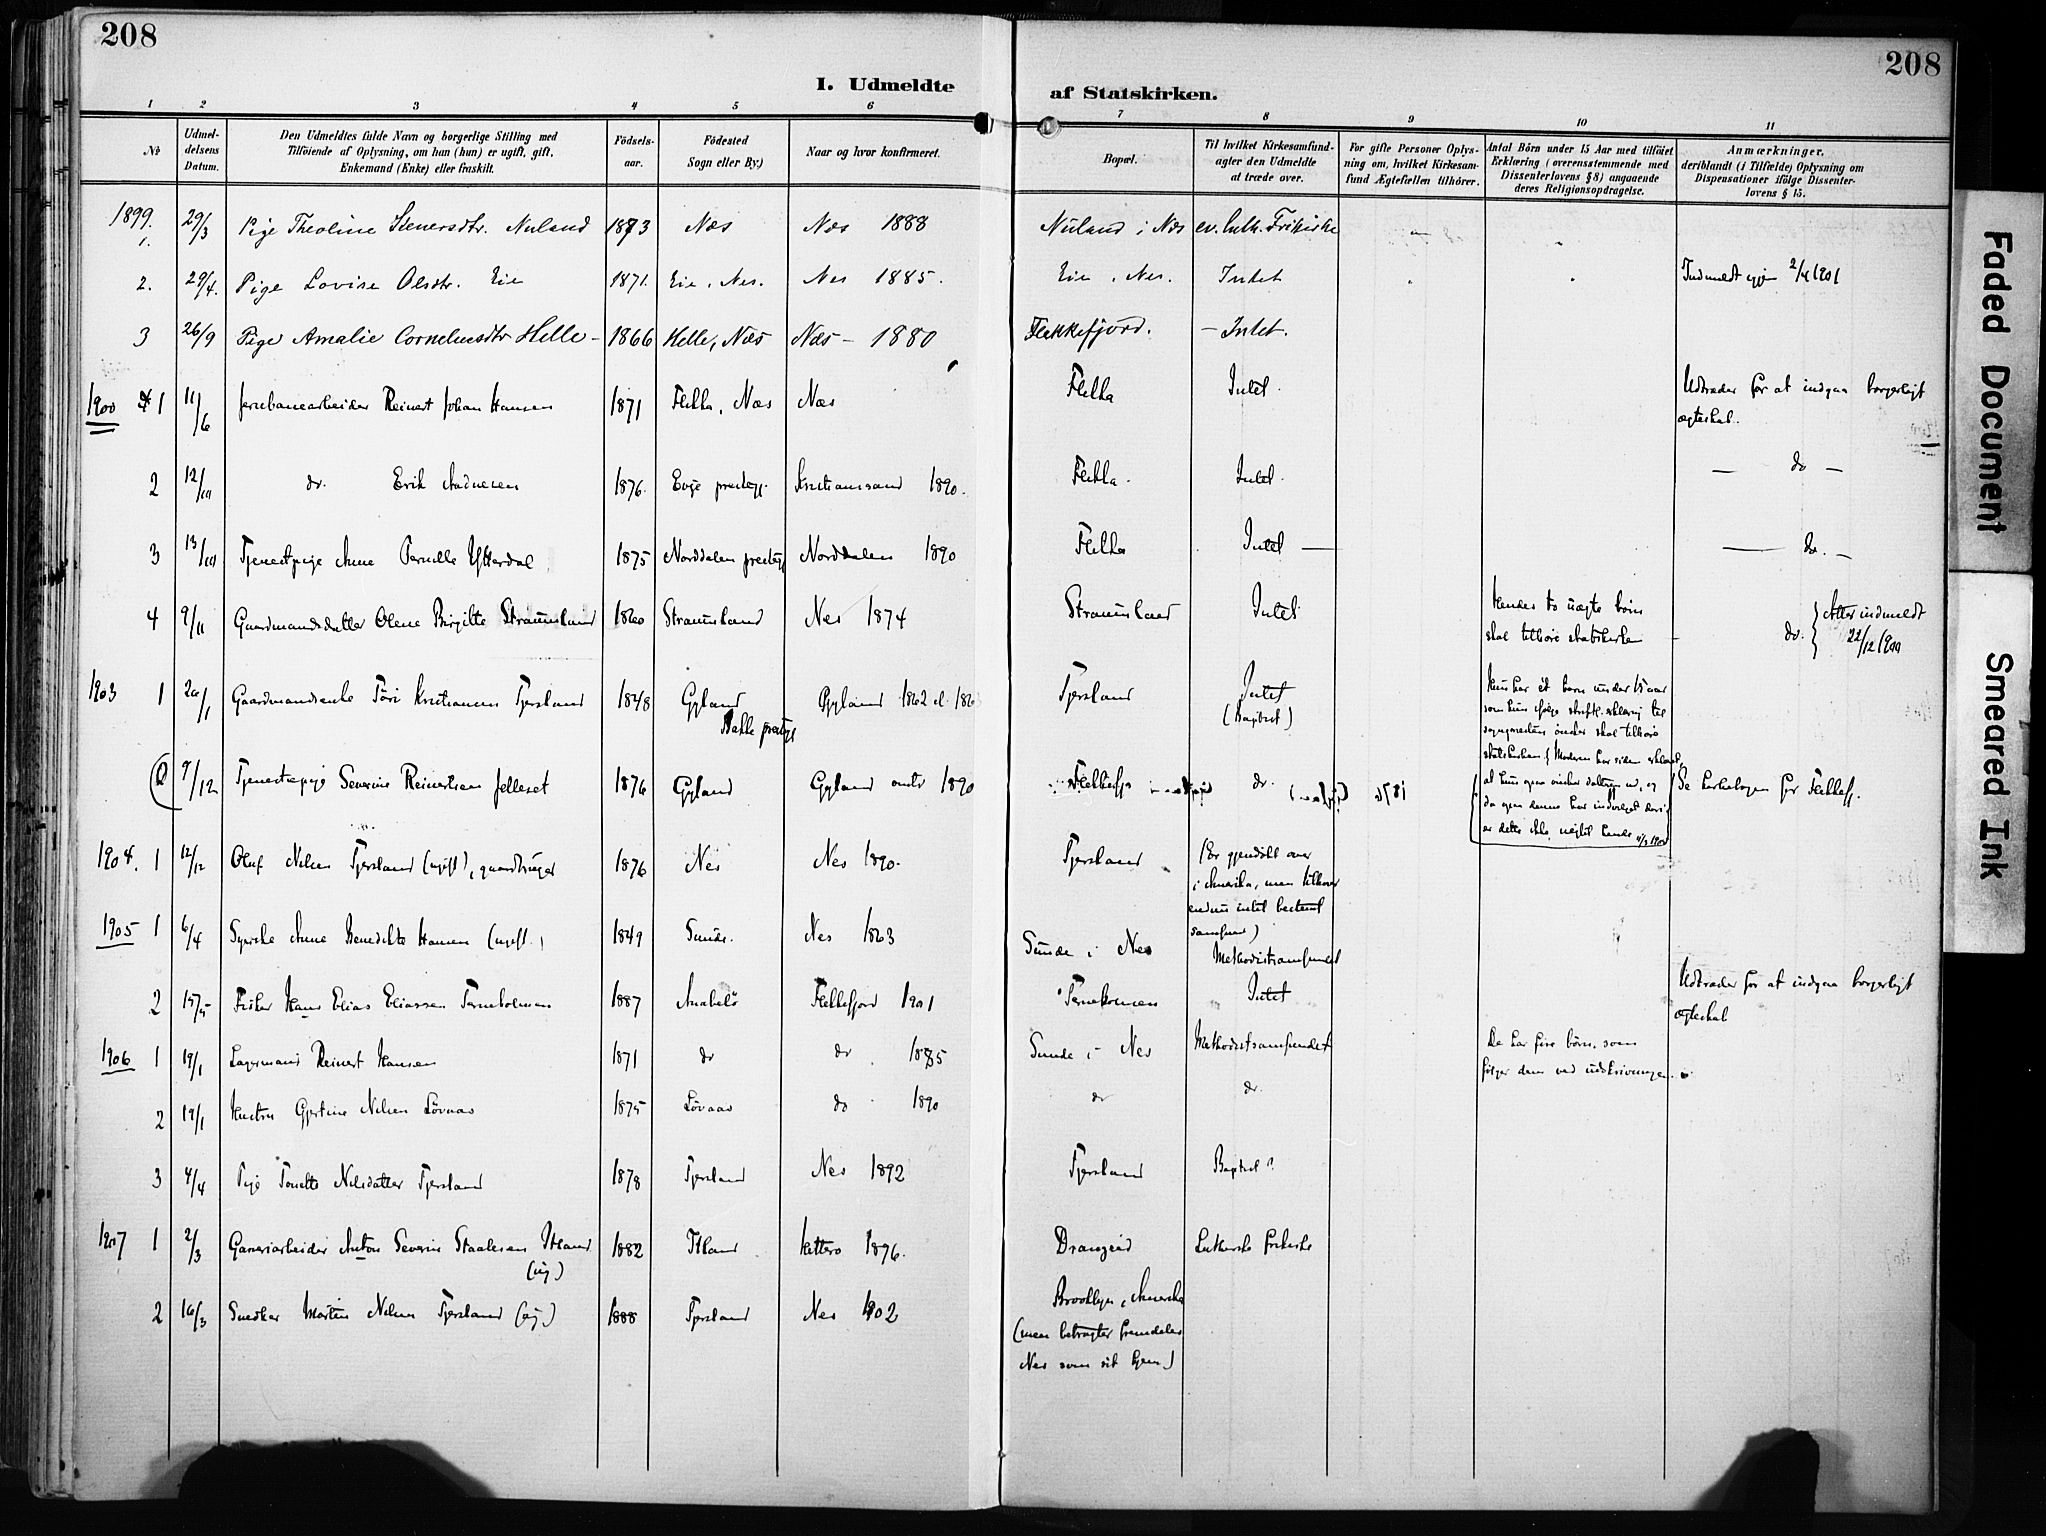 208
208
I. Udmeldte
af Statskirken.
1 2 3 4 5 6 7 8 9 10 11
№
Udmeldelsens Datum.
Den Udmeldtes fulde Navn og borgerlige Stilling med Tilföiende af Oplysning, om han (hun) er ugift, gift, Enkemand (Enke) eller fraskilt.
Födselsaar.
Födested Sogn eller By.)
Naar og hvor konfirmeret.
Bopæl.
Til hvilket Kirkesamfund agter den Udmeldte at træde over.
For gifte Personer Oplysning om, hvilket Kirkesamfund Ægtefællen tilhörer.
Antal Börn under 15 Aar med tilföiet Erklæring (overensstemmende med Dissenterlovens § 8) angaaende deres Religionsopdragelse.
Anmærkninger, deriblandt (i Tilfælde) Oplysning om Dispensationer ifölge Dissenterlovens § 15.
1899. 1. 29/3 Pige Theoline Stenersdtr. Nuland 1873 Næs Næs 1888 Nuland i Næs ev. luth. Frikirke
2. 29/4. Pige Lovise Olsdtr. Eie 1871. Eie, Nes. Nes 1885. Eie, Nes. Intet Indmeldt igjen 2/4 1901
3 26/9 Pige Amalie Corneliusdtr Helle 1866 Helle, Næs Næs - 1880 Flekkefjord. - Intet.
1900 1 11/6 Jernbanearbeider Reinert Johan Hansen 1871 Flikka, Næs Næs Flikka Intet. Udtræder for at indgaa borgerligt
ægteskab.
2 12/10 do. Erik Aadnesen 1876. Evje prestegj. Kristianssand 1890. Flikka. Intet. - do -
3 13/10 Tjenestpige Anne Pernille Ytterdal 1875 Norddalen prestegj Norddalen 1890 Flikka Intet - do. -
4 9/11 Gaardmandsdatter Olene Birgitte Straumland 1860 Straumland Nes 1874 Straumland Intet. Hendes to uægte børn
skal tilhøre statskirken do. Atter indmeldt
22/12 1900
1903 1 20/1 Gaardmandsenke Tøri Kristiansen Fjersland 1848 Gyland
Bakke prestegj Gyland 1862 el. 186 Fjersland Intet
(Baptist) Hun har et barn under 15 aar
som hun ifølge skriftl. erklæring til
sognepresten ønsker skal tilhøre
statskirken. (Moderen har siden erklæret,
at hun ønsker
er dette
2 9/12 Tjenestepige Severine Reinertsen Jelleset 1876 Gyland Gyland 1890 Flekkefj. do. Se kirkebogen for Flekkefj.
1904. 1 12/12 Oluf Nilsen Fjersland (ugift), gaardbruger 1876 Nes Nes 1890. Fjersland (Er gjendøbt over
i Amerika, men tilhører
endnu intet bestemt
samfund)
1905 1 6/4 Syerske Anne Benedikte Hansen (ugift.) 1849 Sunde. Nes 1863 Sunde i Nes Methodistsamfundet
2 15/5 Fisker Hans Elias Eliassen Terneholmen 1887 Anabelø Flekkefjord 1901 Terneholmen Intet Udtræder for at indgaa borgerligt
ægteskab
1906 1 19/1 Lagermand Reinert Hansen 1871 do do 1885 Sunde i Nes Methodistsamfundet De har fire børn, som
følger dem ved udskrivningen.
2 19/1 Hustru Gjertine Nilsen Løvaas 1875 Løvaas do 1890 do do
3 4/4 Pige Tonette Nilsdatter Fjersland 1878 Fjersland Nes 1892 Fjersland Baptist?
1907 1 2/3 Garveriarbeider Anton Severin Staalesen Itland
(ug.) 1882 Itland Hitterø 1896. Drangeid Lutherske frikirke
2 16/3 Snedker Martin Nilsen Fjersland (ug.) 1888 Fjersland Nes 1902 Brooklyn, Amerika
(men betragter fremdeles
Nes som sit hjem)
Faded Document
Smeared Ink